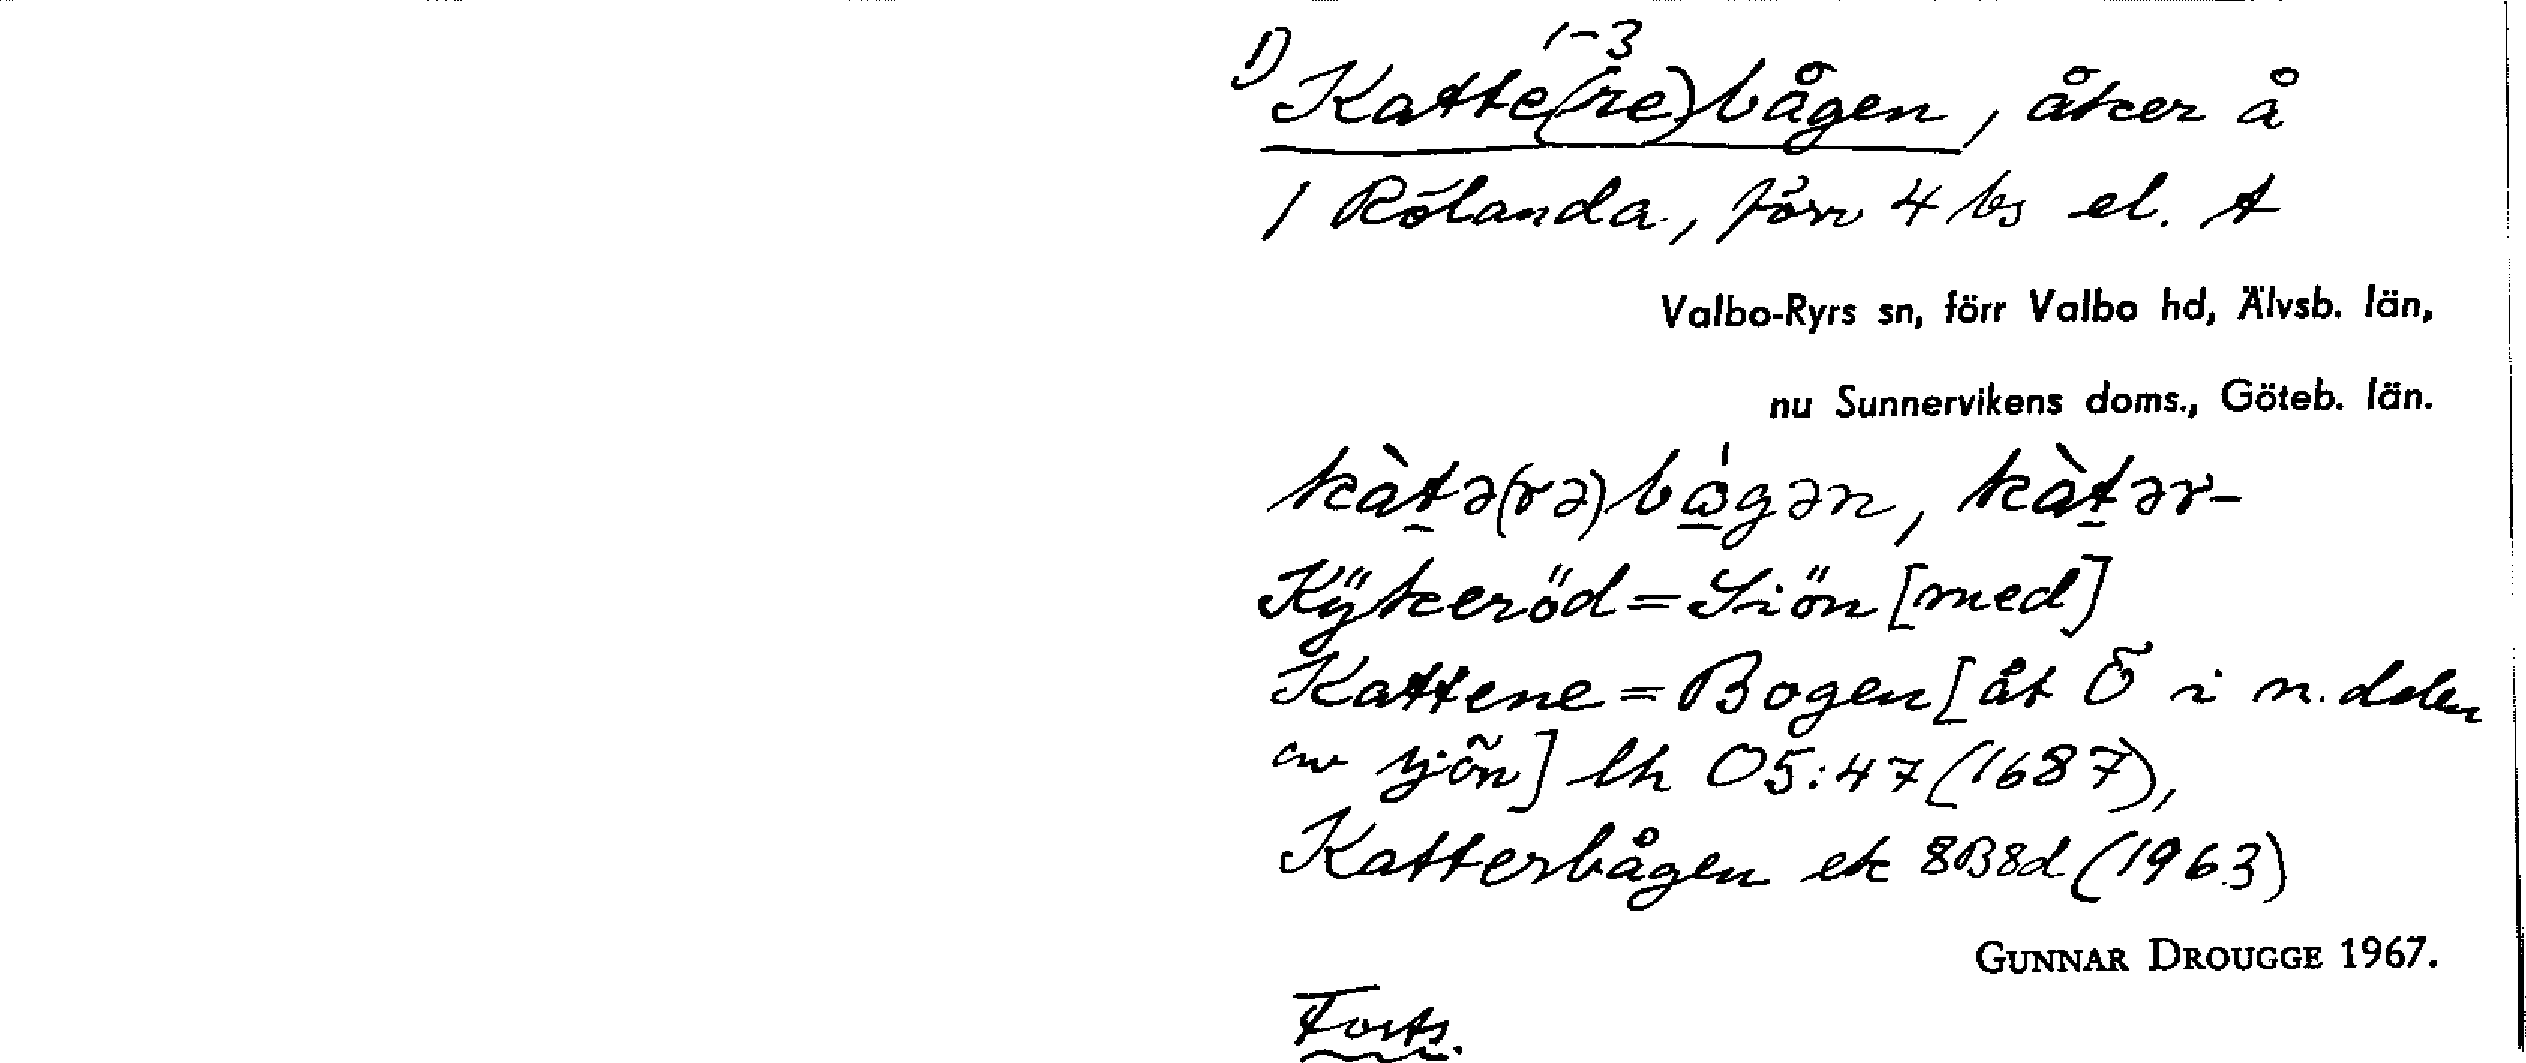 1) Katte(re)bågen, åker å
1-3
1 Rölanda, förr 4 bs el. A
Valbo-Ryrs sn, förr Valbo hd, Älvsb. län,
nu Sunnervikens doms., Göteb. län.
kàt̲ə(rə)bώ̲gən, kàt̲ər-
Kÿkeröd=Siön [med]
Kattene=Bogen [åt Ö i n. delen
av sjön] lh O5:47 (1687),
Katterbågen ek 8B8d (1963)
GUNNAR DROUGGE 1967.
Forts.